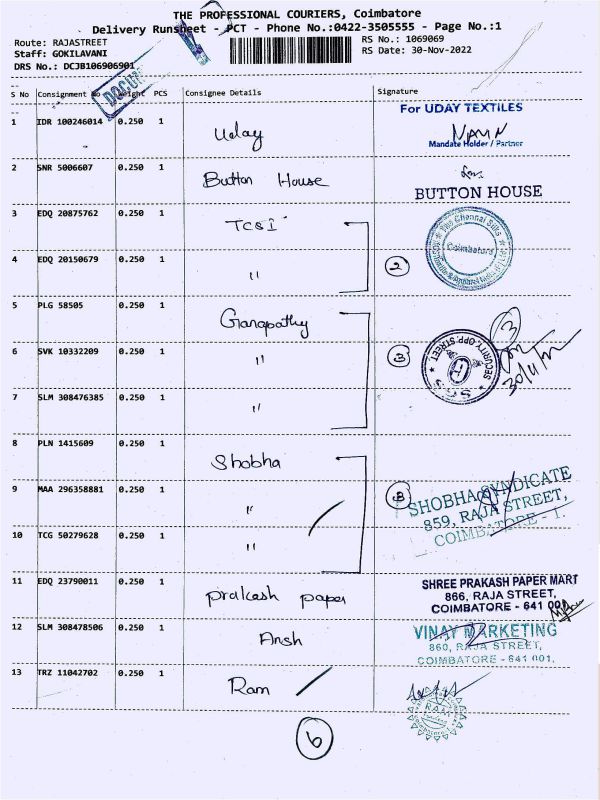 THE PROFESSIONAL COURIERS, Coimbatore
Delivery Runsheet - PCT - Phone No.:0422-3505555 - Page No.:1
Route: RAJASTREET
Staff: GOKILAVANI
DRS No.: DCJB106906901
RS No.: 1069069
RS Date: 30-Nov-2022
S No Consignment No Weight PCS Consignee Details Signature
1 IDR 100246014 0.250 1 Uday
For UDAY TEXTILES
Mandate Holder / Partner
2 SNR 5006607 0.250 1 Button House
BUTTON HOUSE
3 EDQ 20875762 0.250 1 TCSI
The Chennai Silks
Coimbatore
4 EDQ 20150679 0.250 1 "
2
5 PLG 58505 0.250 1 Ganapathy
3
6 SVK 10332209 0.250 1 "
3
SECURITY-OPP.STREET
SGS
30/11/22
7 SLM 308476385 0.250 1 "
8 PLN 1415609 0.250 1 Shobha
9 MAA 296358881 0.250 1 "
3
SHOBHA SYNDICATE
859, RAJA STREET,
COIMBATORE - 1.
10 TCG 50279628 0.250 1 "
11 EDQ 23790011 0.250 1 prakash paper
SHREE PRAKASH PAPER MART
866, RAJA STREET,
COIMBATORE - 641 001
12 SLM 308478506 0.250 1 Ansh
VINAY MARKETING
860, RAJA STREET,
COIMBATORE - 641 001.
13 TRZ 11042702 0.250 1 Ram
RAM
6